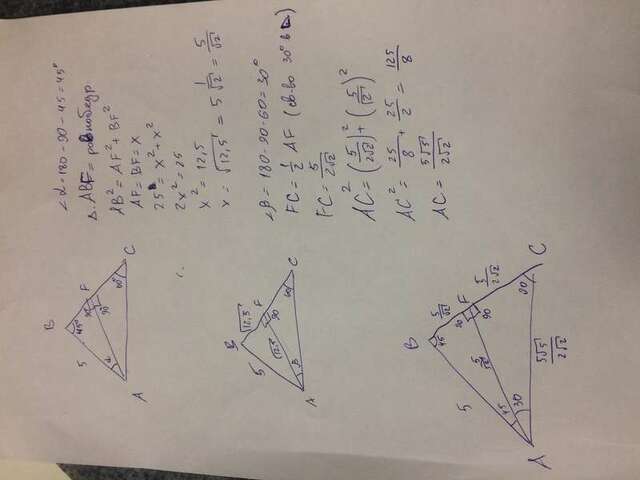 ∠α=180-90-45=45°
Δ ABF = равнобедр
AB² = AF² + BF²
AF = BF = x
25 = x² + x²
2x² = 25
x² = 12,5
x = √12,5 = 5√1/2 = 5/√2
∠β = 180-90-60 = 30°
FC = 1/2 AF (св-во 30° в ⊿)
FC = 5/2√2
AC² = (5/2√2)² + (5/√2)²
AC² = 25/8 + 25/2 = 125/8
AC = 5√5/2√2
B
5
45°
90
F
90
α
60°
A
C
B
√12,5
5
F
90
√12,5
β
60
A
C
B
5
45
5/√2
90
F
90
5/√2
5/2√2
45
30
60
A
C
5√5/2√2